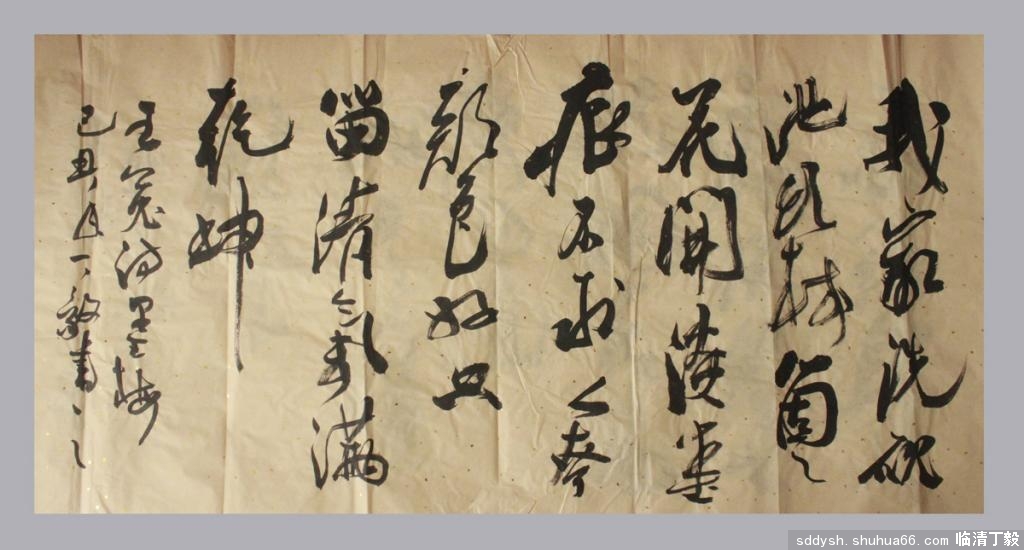 我家洗砚
池頭樹箇々
花開淡墨
痕不要人夸
颜色好只
留清氣滿
乾坤
王冕詩墨梅
己丑年丁毅書
sddysh.shuhua66.com 临清丁毅